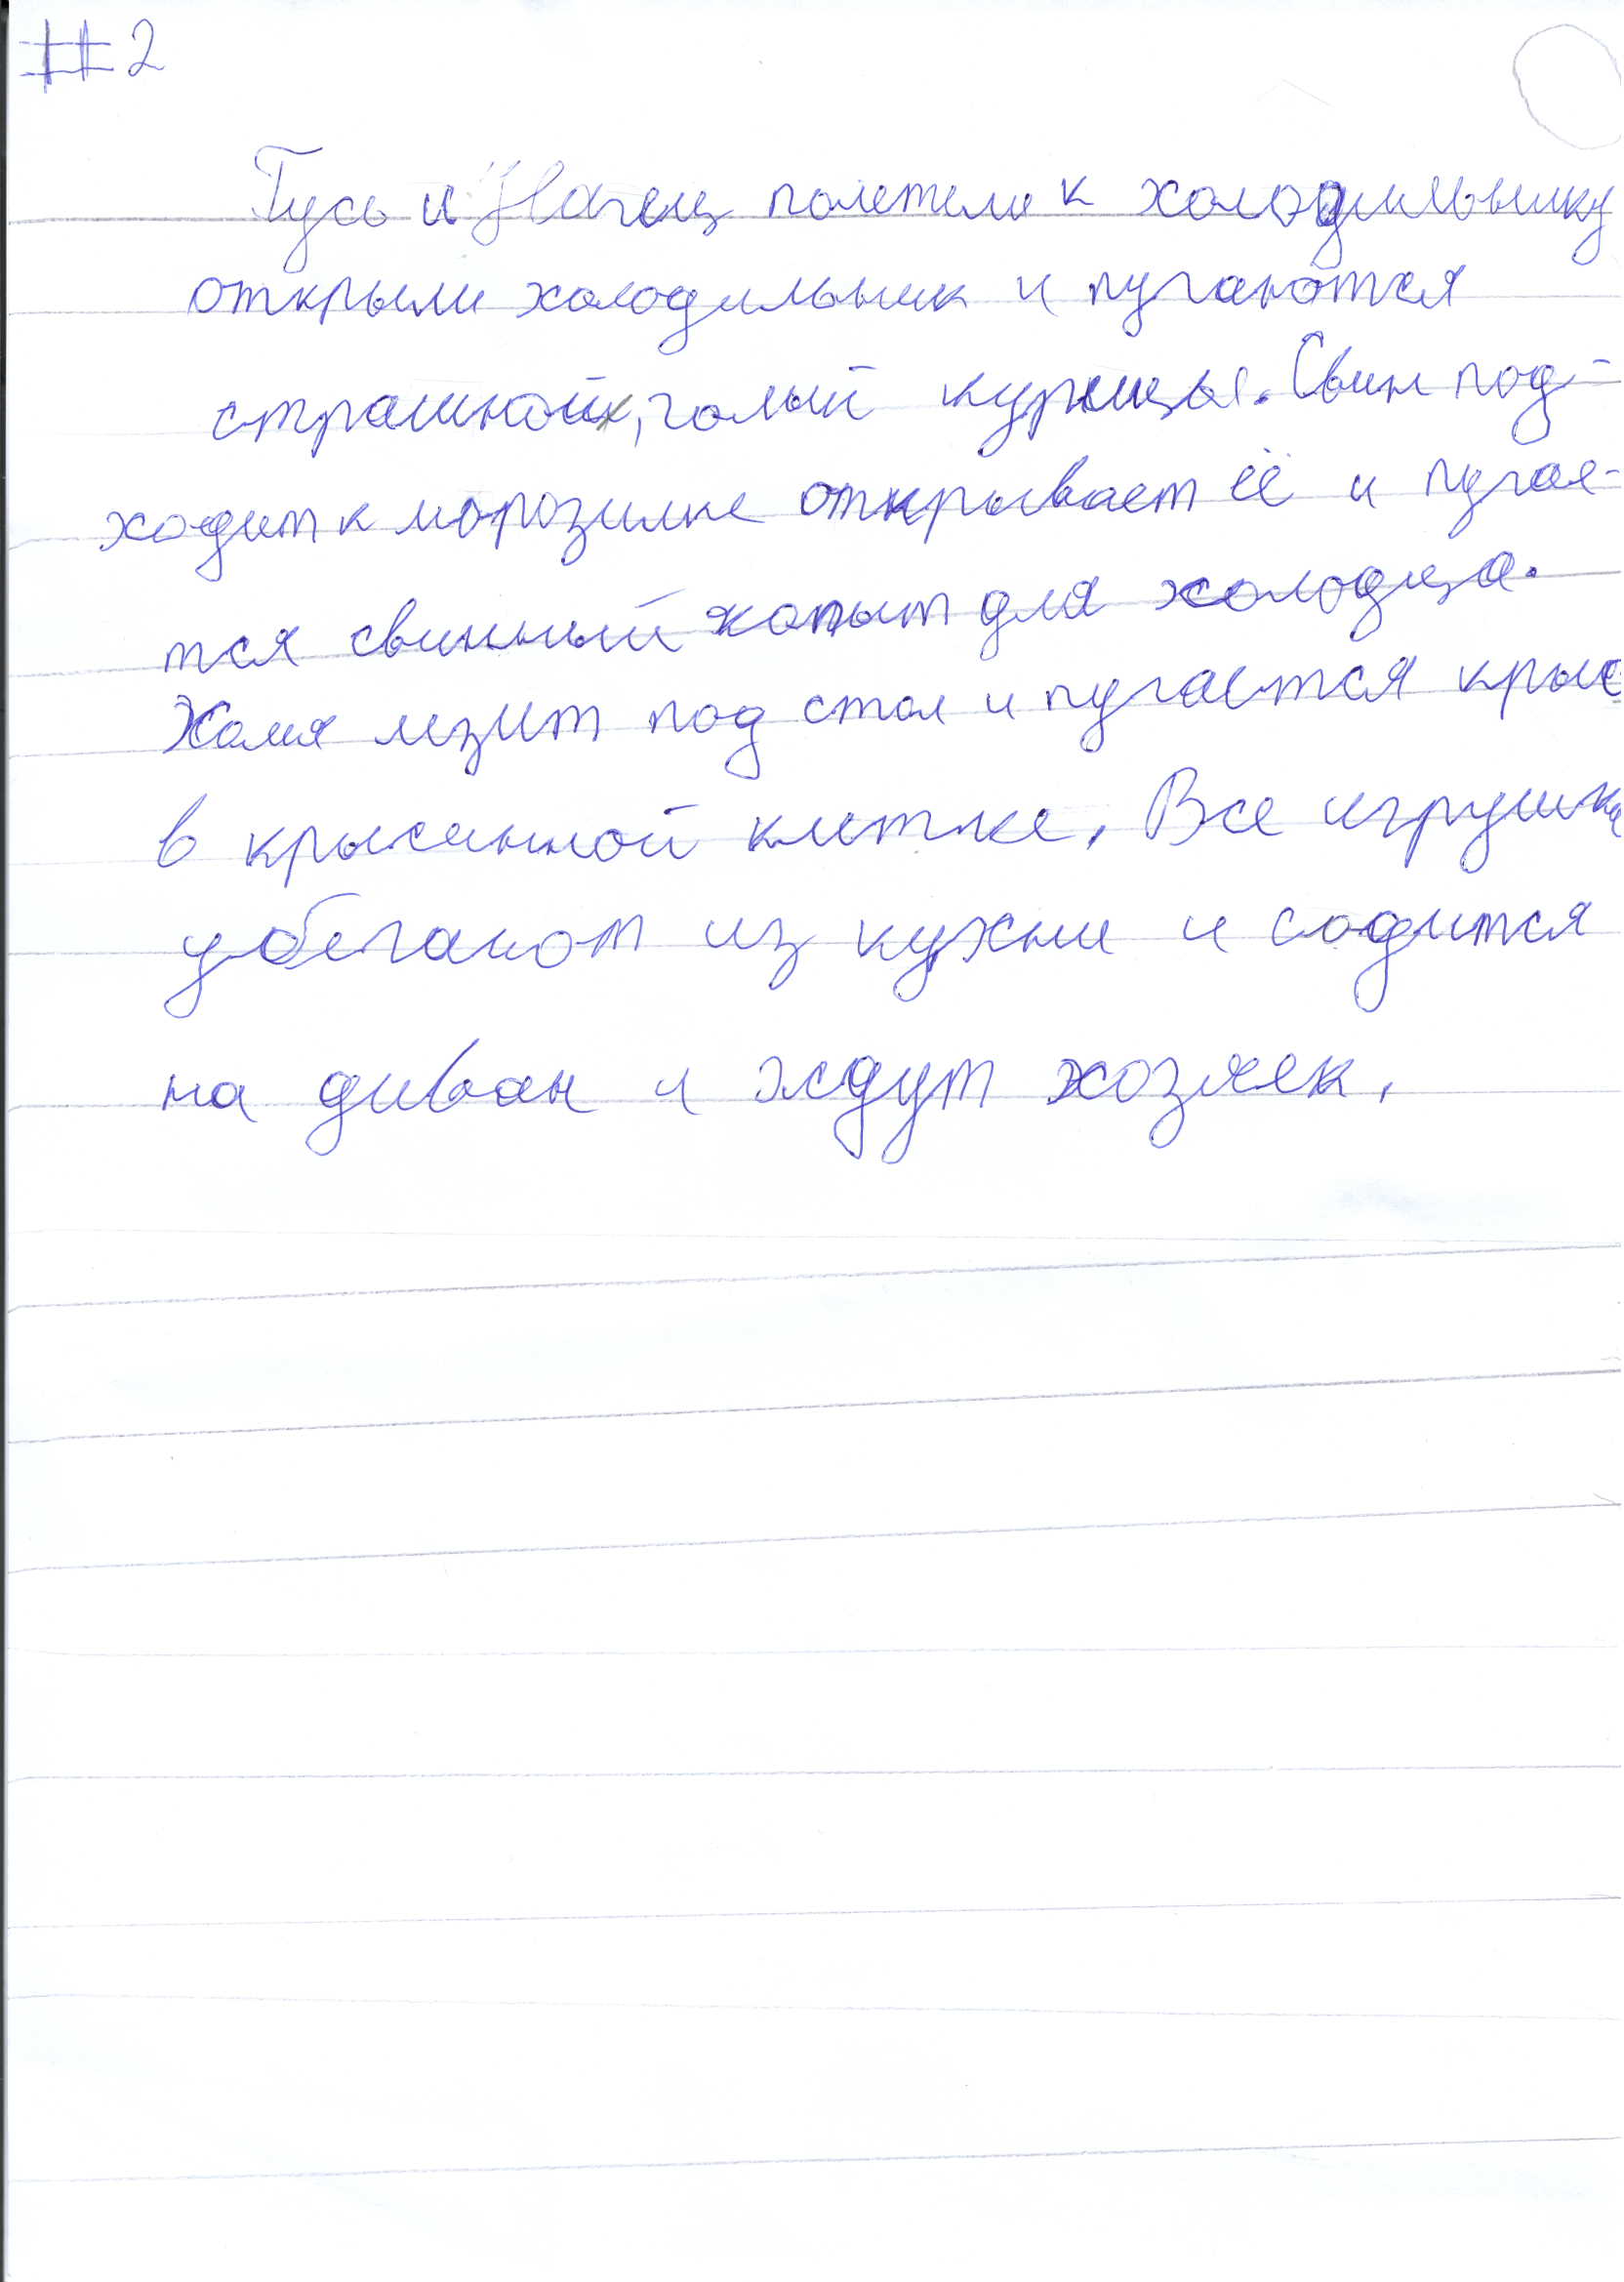 #2
Гусь и полетели к холодильнику
открыли холодильник и пугаются
страшной, голый курицы. Свин под-
ходит к морозилке открывает её и пугае-
тся свинный копыт для холодца.
Хомя лезит под стол и пугается крыс
в крысинной клетке. Все игрушки
убегают из кухни и содится
на диван и ждут хозяек.